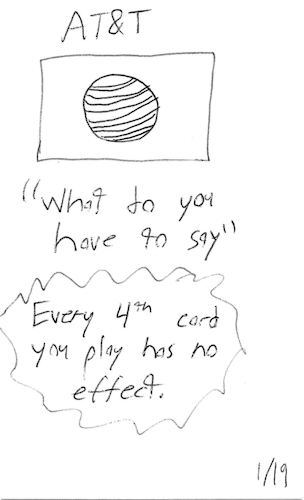 AT&T
"What do you
have to say"
Every 4th card
you play has no
effect.
1/19